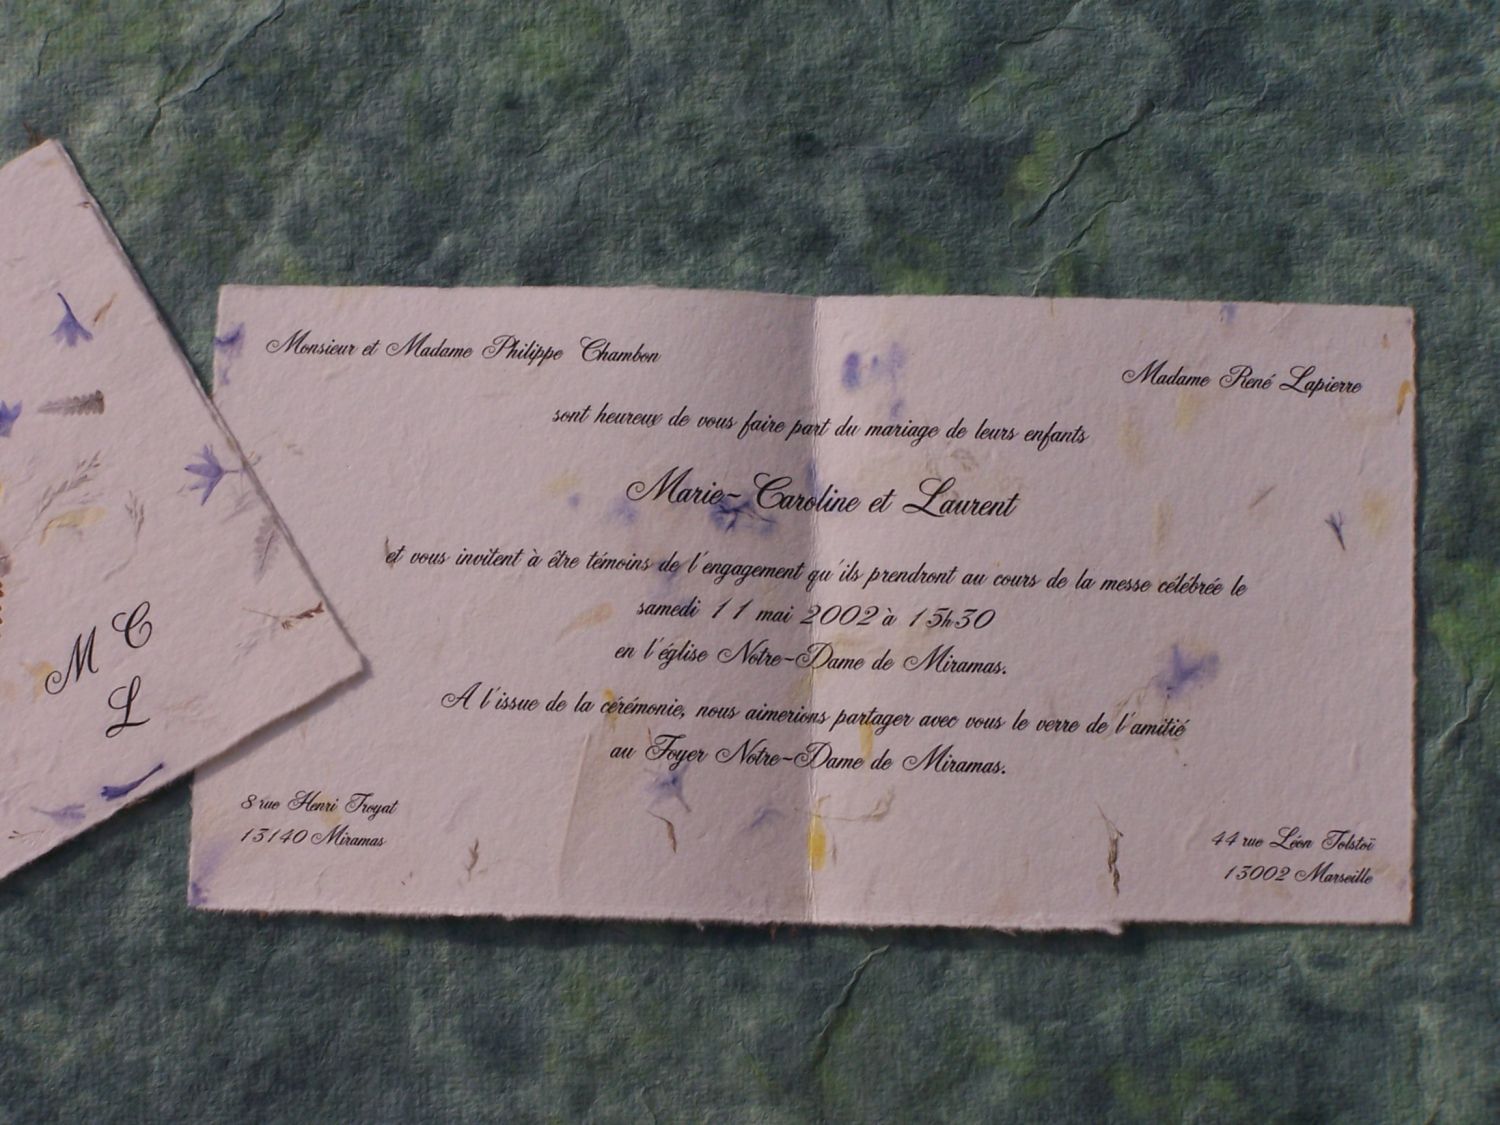 Monsieur et Madame Philippe Chambon
Madame René Lapierre
sont heureux de vous faire part du mariage de leurs enfants
Marie-Caroline et Laurent
et vous invitent à être témoins de l'engagement qu'ils prendront au cours de la messe célébrée le
samedi 11 mai 2002 à 15h30
en l'église Notre-Dame de Miramas.
A l'issue de la cérémonie, nous aimerions partager avec vous le verre de l'amitié
au Foyer Notre-Dame de Miramas.
8 rue Henri Troyat
13140 Miramas
44 rue Léon Tolstoï
13002 Marseille
M C
L